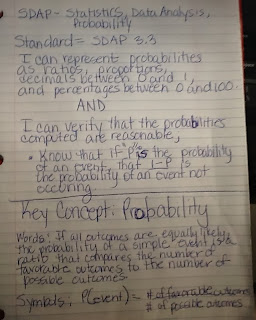 SDAP - Statistics, Data Analysis,
Probability
Standard = SDAP 3.3
I can represent probabilities
as ratios, proportions,
decimals between 0 and 1,
and percentages between 0 and 100.
AND
I can verify that the probabilities
computed are reasonable,
• Know that if P is the probability
of an event, that 1-P is
the probability of an event not
occuring.
Key Concept: Probability
Words: If all outcomes are equally likely,
the probability of a simple event is a
ratio that compares the number of
favorable outcomes to the number of
possible outcomes.
Symbols: P(event) = # of favorable outcomes
# of possible outcomes